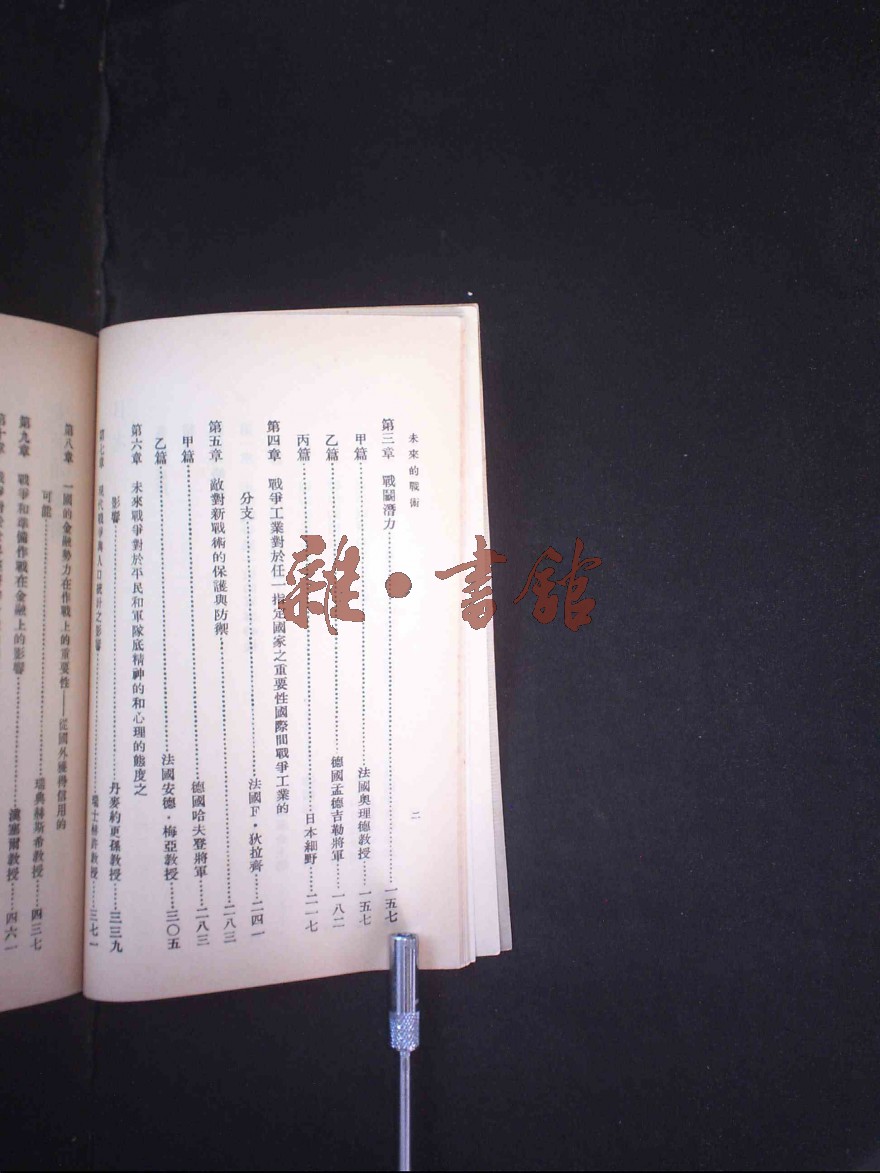 未來的戰術
二
第三章　戰鬭潛力……一五七
甲篇……法國奧理德教授……一五七
乙篇……德國孟德吉勒將軍……一八二
丙篇……日本細野……二一七
第四章　戰爭工業對於任一指定國家之重要性國際間戰爭工業的
分支……法國F·狄拉齊……二四一
第五章　敵對新戰術的保護與防禦……二八三
甲篇……德國哈夫登將軍……二八三
乙篇……法國安德·梅亞教授……三〇五
第六章　未來戰爭對於平民和軍隊底精神的和心理的態度之
影響……丹麥約更孫教授……三三九
第七章　現代戰爭與人口統計之影響……瑞士　教授……三七一
第八章　一國的金融勢力在作戰上的重要性——從國外獲得信用的
可能……瑞典赫斯希教授……四三七
第九章　戰爭和準備作戰在金融上的影響……漢塞爾教授……四六一
第十章
雜·書館